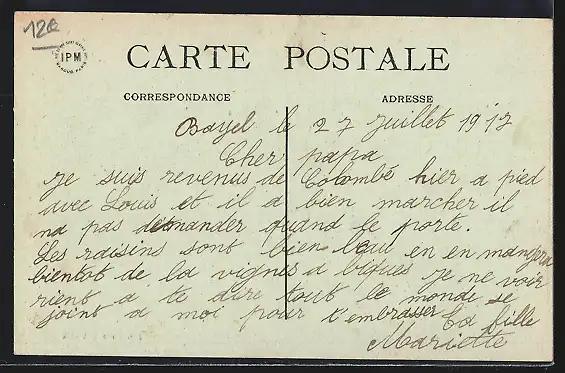 12€
IPM
CARTE POSTALE
CORRESPONDANCE
ADRESSE
Bayel le 27 Juillet 1917
Cher papa
Je suis revenus de Colombé hier a pied
avec Louis et il a bien marcher il
na pas demander quand le porte.
Les raisins sont bien en en mangera
bientot de la vignes a je ne voir
rient a te dire tout le monde se
joint a moi pour t'embrasser ta fille
Mariette